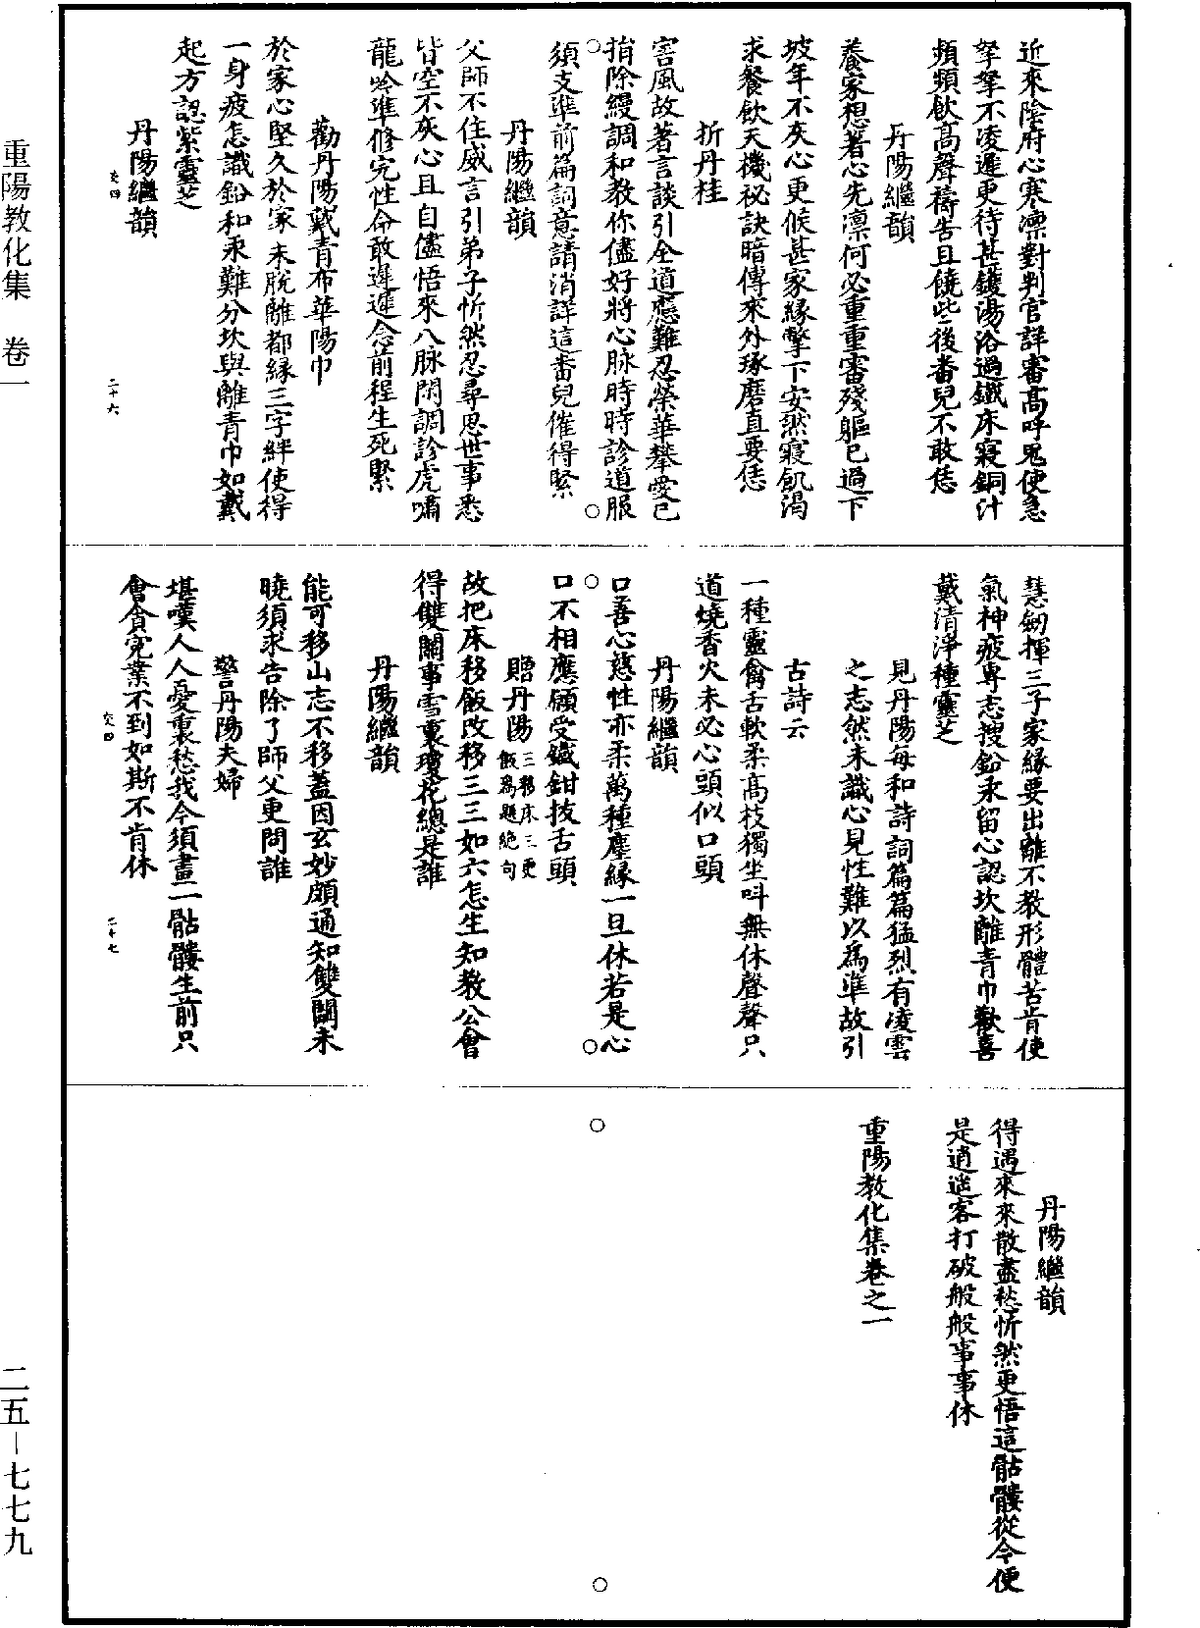 近來陰府心寒凛對判官詳審高呼鬼使急
拏拏不凌遲更待甚鑊湯浴過鐵床寢銅汁
頻頻飲高聲禱告且饒些後畨兒不敢恁
丹陽繼韻
養家想著心先凛何必重重審殘軀已過下
坡年不灰心更候甚家緣擎下安然寢飢渴
求餐飲天機祕訣暗傳來外琢磨直要恁
折丹桂
害風故著言談引全道應難忍榮華攀愛已
捎除縵調和教你儘好將心脉時時診道服
須支準前篇詞意請消詳這畨兒催得緊
丹陽繼韻
父師不住威言引弟子忻然忍尋思世事悉
皆空不灰心且自儘悟來八脉閑調診虎嘯
龍吟準修完性命敢遲遲念前程生死緊
勸丹陽戴青布華陽巾
於家心堅久於家未脫離都緣三字絆使得
一身疲怎識鉛和汞難分坎與離青巾如戴
起方認紫靈芝
丹陽繼韻
交四
二十六
慧劒揮三子家緣要出離不教形體苦肯使
氣神疲專志搜鉛汞留心認坎離青巾歡喜
戴清淨種靈芝
見丹陽每和詩詞篇篇猛烈有凌雲
之志然未識心見性難以爲準故引
古詩云
一種靈禽舌軟柔高枝獨坐叫無休聲聲只
道燒香火未必心頭似口頭
丹陽繼韻
口善心慈性亦柔萬種塵緣一旦休若是心
口不相應願受鐵鉗拔舌頭
贈丹陽三移床三更飯爲題絶句
故把床移飯改移三三如六怎生知教公會
得雙關事雪裏瓊花總是誰
丹陽繼韻
能可移山志不移蓋因玄妙頗通知雙關未
曉須求告除了師父更問誰
警丹陽夫婦
堪嘆人人憂裏愁我今須畫一骷髏生前只
會貪寃業不到如斯不肯休
交四
二十七
丹陽繼韻
得遇來來散盡愁忻然更悟這骷髏從今便
是逍遥客打破般般事事休
重陽教化集卷之一
重陽教化集 卷一
二五—七七九